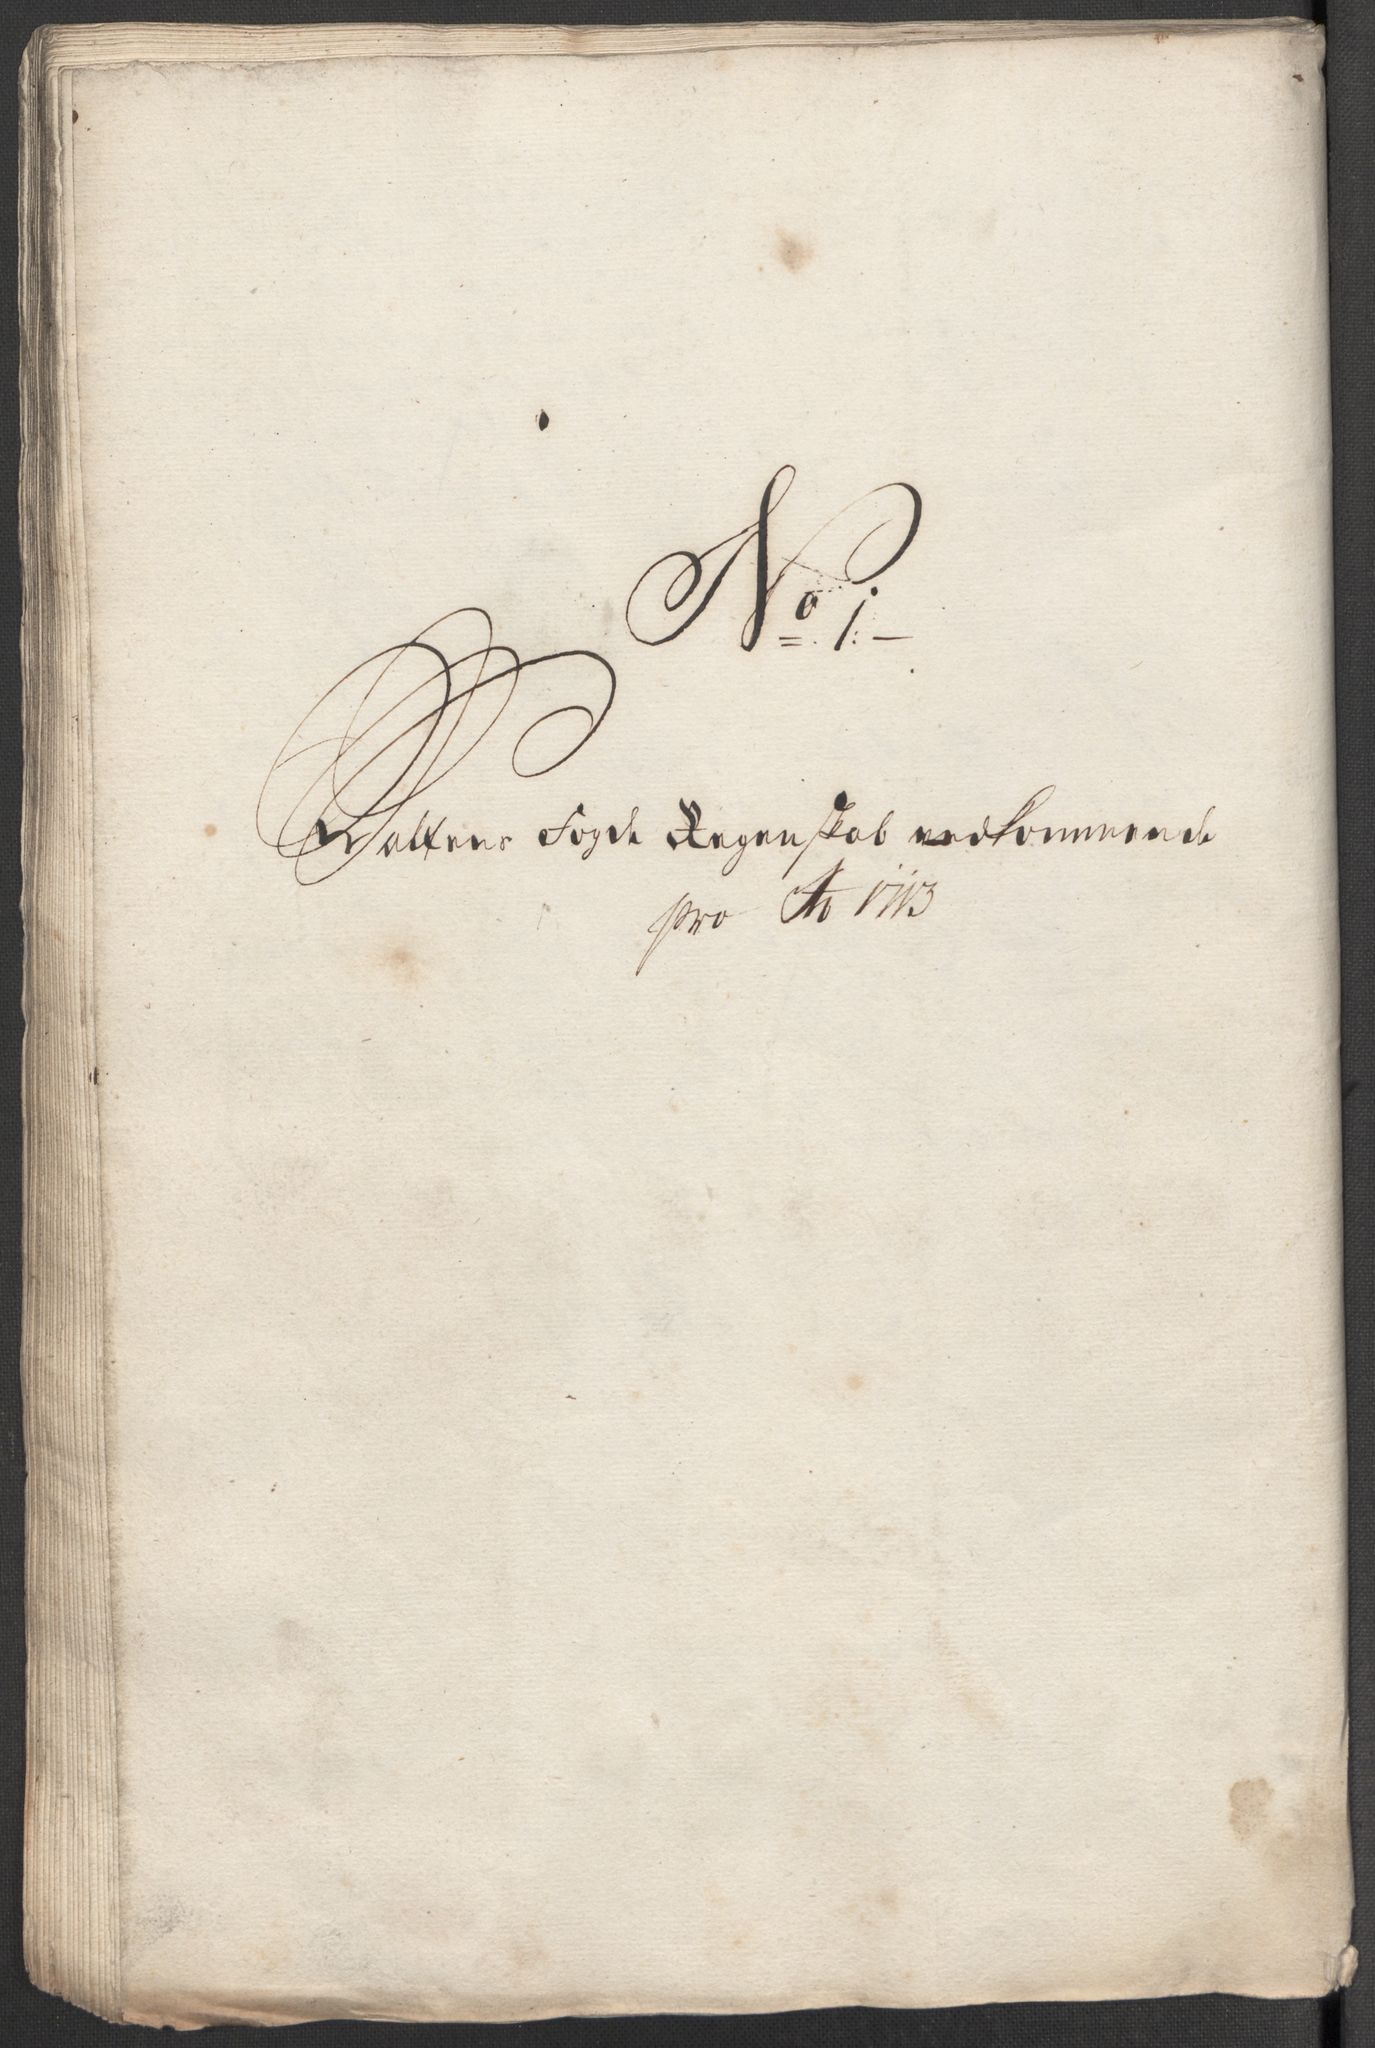 No 1.
Saltens Fogde Regenskab vedkommende
pro Ao 1713